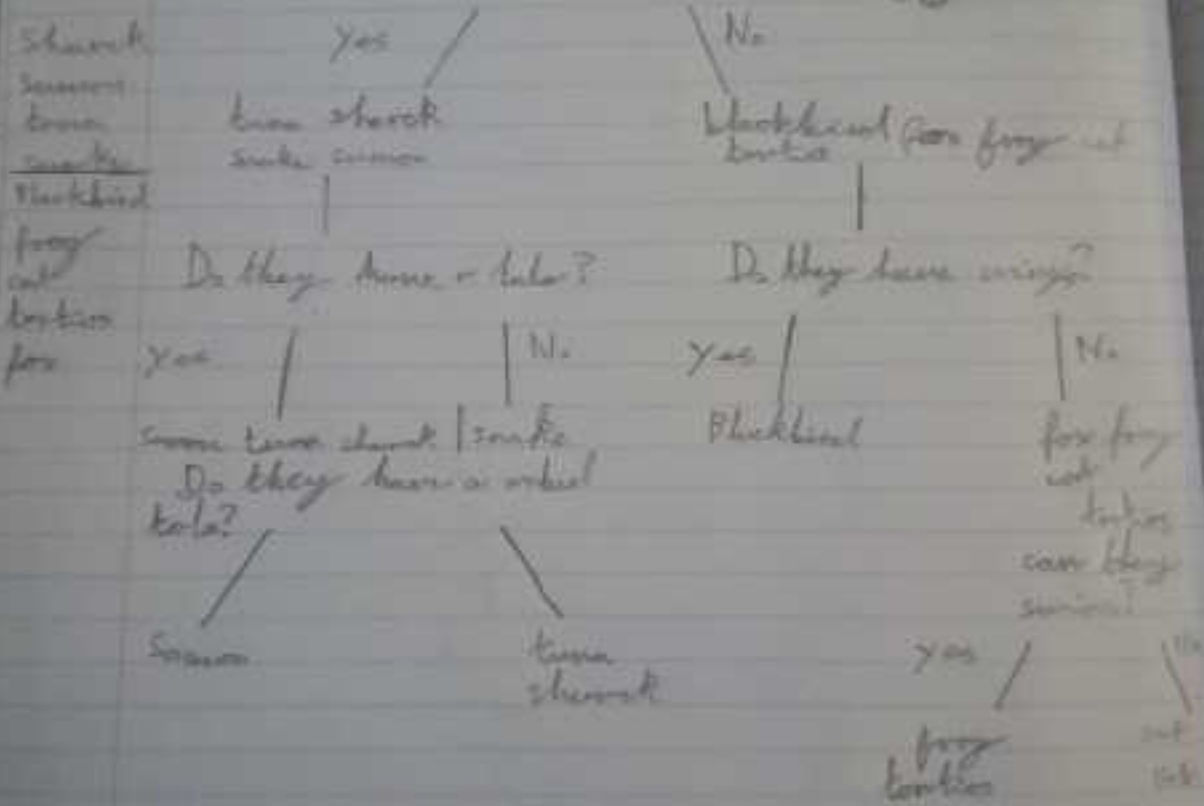 Shark
tuna
snake
Blackbird
frog
cat
tortios
fox
Yes
No
tuna shark
snake
Blackbird fox frog cat
tortios
Do they have a tale?
Do they have wings?
Yes
No
Yes
No
tuna shark | snake
Blackbird
fox frog
cat
tortios
Do they have a
tale?
can they
tuna
shark
yes
frog
tortios
cat